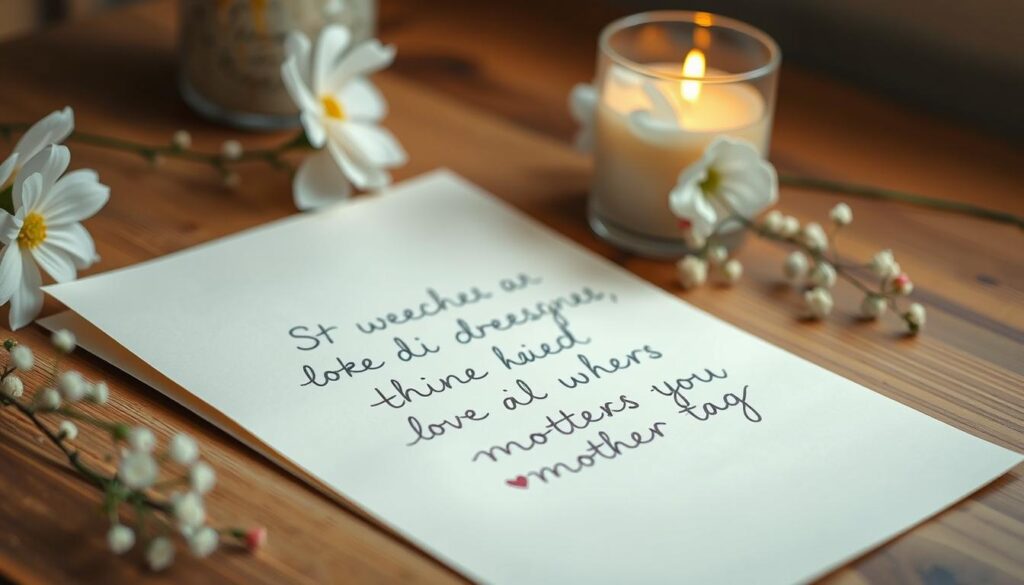 St weeches ar
loke di dreesgnes,
thine haied
love ail whers
motters you
♥mother tag